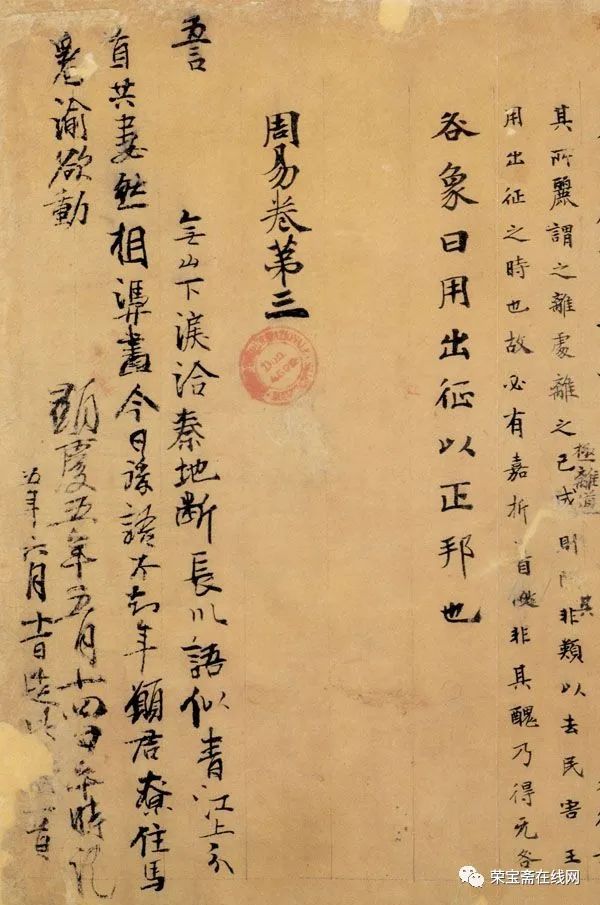 其所麗謂之離處離之已成則除其非類以去民害王
極離道
用出征之時也故必有嘉折首非其醜乃得无咎
咎象曰用出征以正邦也
周易卷第三
五言
山下淚洽秦地断長川語似青江上分
首共妻然相畫今日語不知年願君住馬
渝欲動
顯慶五年五月十四日午時記
五年六月十一日
荣宝斋在线网